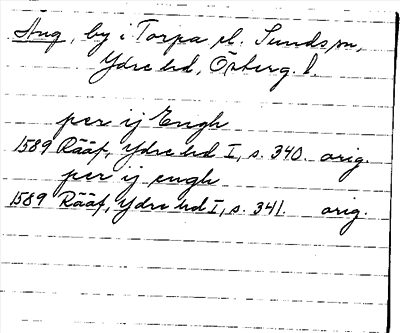 Äng, by i Torpa el. Sunds sn,
Ydre hd, Östergl.
per ij Engh
1589 Rääf, Ydre hd I, s. 340. orig.
per ij engh
1589 Rääf, Ydre hd I, s. 341. orig.